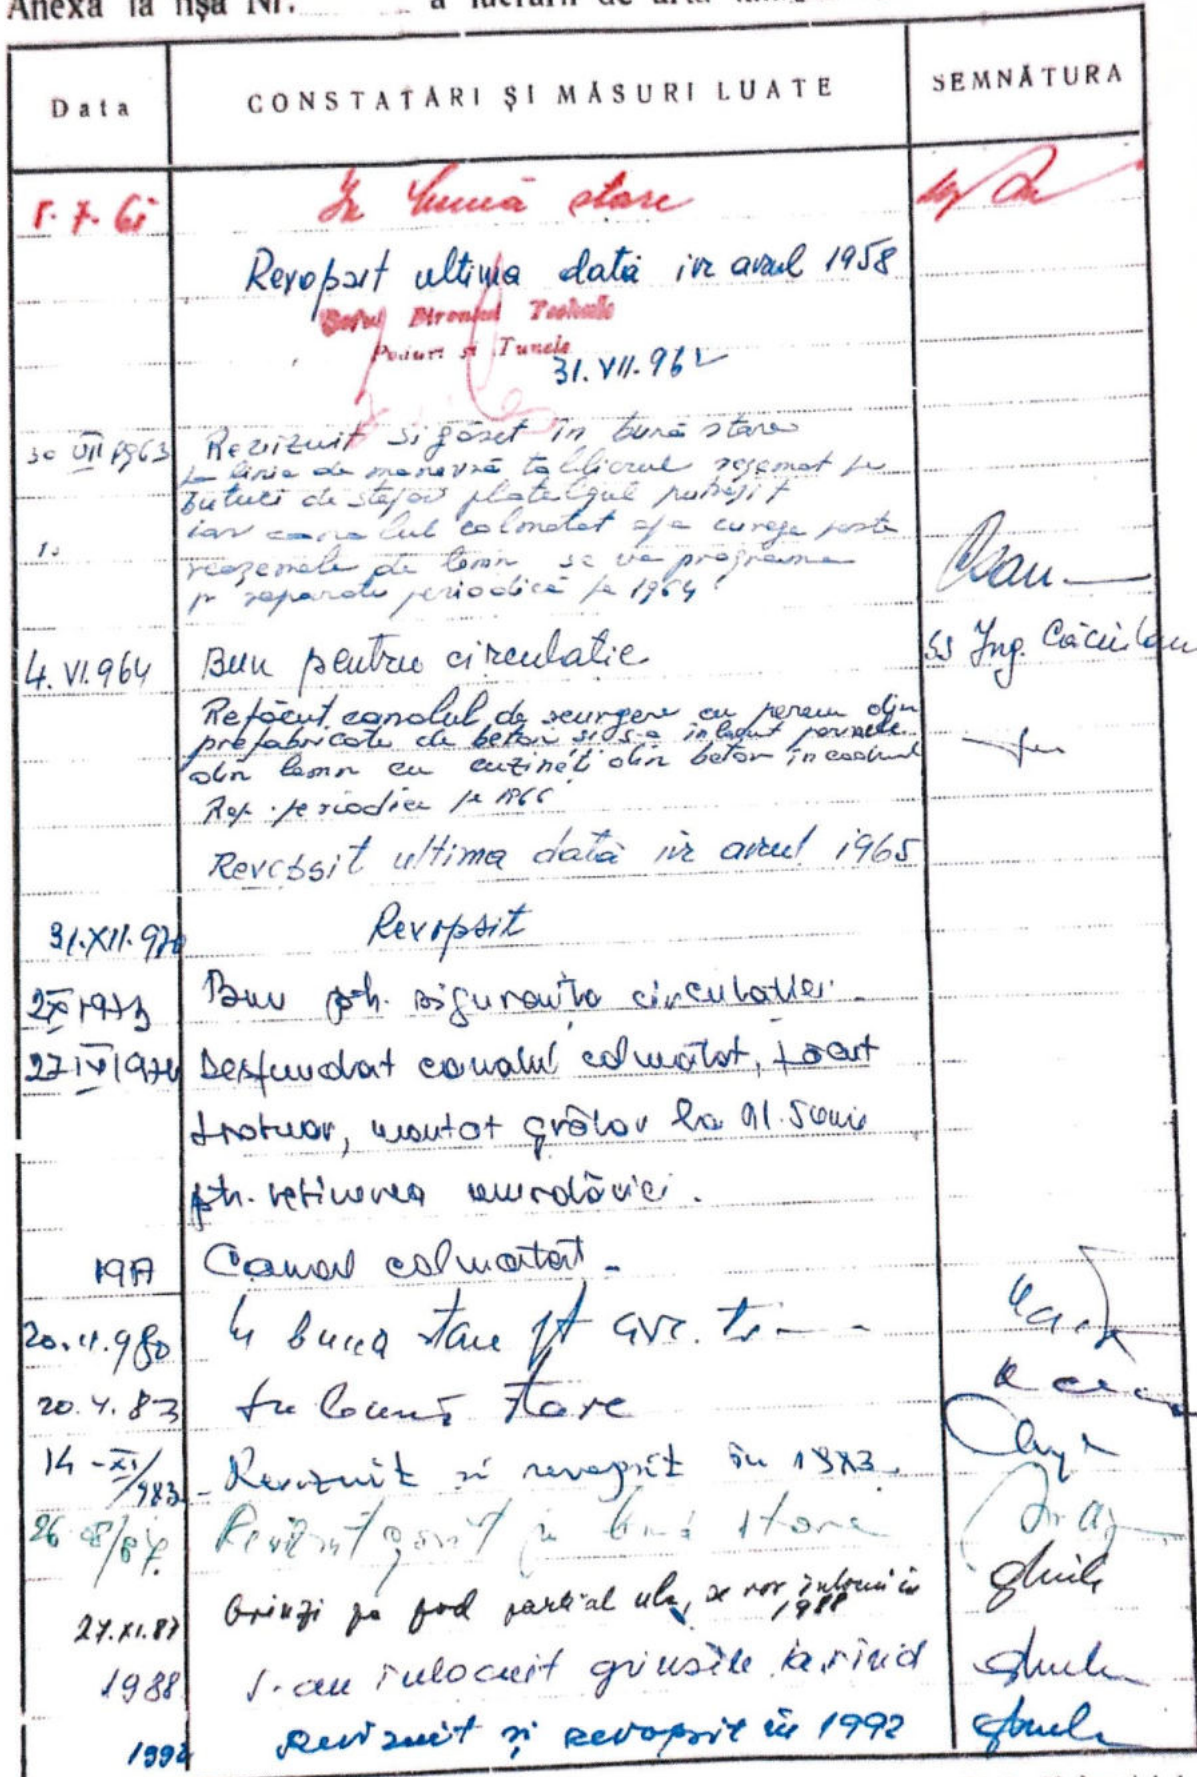 Anexa la fișa Nr. a lucrării de artă
Data CONSTATĂRI ȘI MĂSURI LUATE SEMNĂTURA
În bună stare
Revopsit ultima dată în anul 1958
Șeful Biroului Tehnic
Poduri și Tunele
31.VII.962
30 VII 1963 Revizuit si găsit în bună stare
pe linia de manevră tablierul rezemat pe
butuci de stejar platelajul putrezit
iar canalul colmatat apa curge peste
reazemele de lemn se va programa
p reparatie periodică pe 1964
4.VI.964 Bun pentru circulatie
ss Ing. Căciulan
Refăcut canalul de scurgere cu pereu din
prefabricate de beton si s-a inlocuit pernele
din lemn cu cuzineți din beton in cadrul
Rep. periodice pe 1966
Revopsit ultima dată în anul 1965
31.XII.970 Revopsit
2 X 1973 Bun ptr. siguranța circulației.
27 IV 1974 Desfundat canalul colmatat, făcut
trotuar, montat grătar la
ptr. reținerea murdăriei.
Canal colmatat -
20. 980 În buna stare pt
20.4.83 În bună stare
14-XI/983 - Revizuit și revopsit în 1983.
26 Revizuit găsit în bună stare
27.XI.87 Grinzi pe pod parțial , se vor inlocui in
1988
1988 S-au inlocuit grinzile
1992 Revizuit și revopsit în 1992